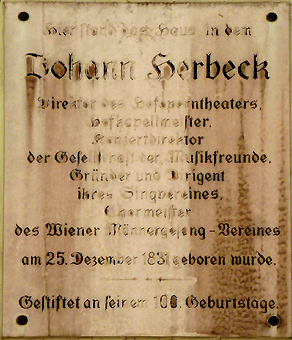 Hier stand das Haus, in dem
Johann Herbeck
Direktor des Hofoperntheaters,
Hofkapellmeister,
Konzertdirektor
der Gesellschaft der Musikfreunde,
Gründer und Dirigent
ihres Singvereines,
Chormeister
des Wiener Männergesang-Vereines
am 25. Dezember 1831 geboren wurde.
Gestiftet an seinem 100. Geburtstage.